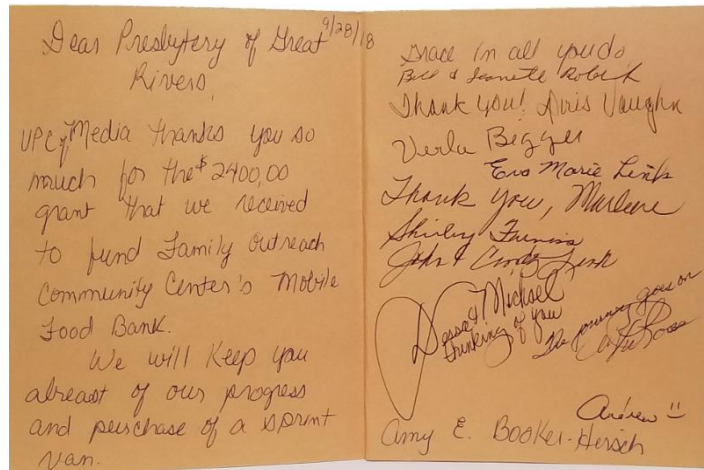 9/28/18
Dear Presbytery of Great
Rivers,
UPC of Media thanks you so
much for the $2400,00
grant that we received
to fund Family Outreach
Community Center's Mobile
Food Bank.
We will Keep you
abreast of our progress
and purchase of a sprint
van.
Grace in all you do
Bill & Jeanette
Thank you! Doris Vaughn
Verla
Eva Marie Link
Thank you, Marlene
Shirley
John & Cindy Link
Michael
thinking of you
The journey goes on
Andrew
Amy E. Booker-Hirsch